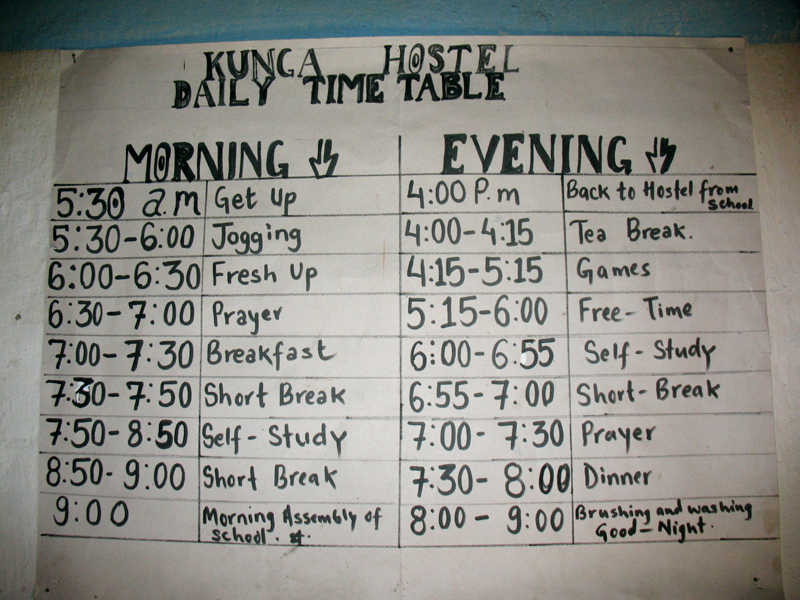 KUNGA HOSTEL
DAILY TIME TABLE
MORNING
5:30 a.m Get Up
5:30-6:00 Jogging
6:00-6:30 Fresh Up
6:30-7:00 Prayer
7:00-7:30 Breakfast
7:30-7:50 Short Break
7:50-8:50 Self-Study
8:50-9:00 Short Break
9:00 Morning Assembly of
school.
EVENING
4:00 P.m Back to Hostel from
school
4:00-4:15 Tea Break.
4:15-5:15 Games
5:15-6:00 Free-Time
6:00-6:55 Self-Study
6:55-7:00 Short-Break
7:00-7:30 Prayer
7:30-8:00 Dinner
8:00-9:00 Brushing and washing
Good-Night.